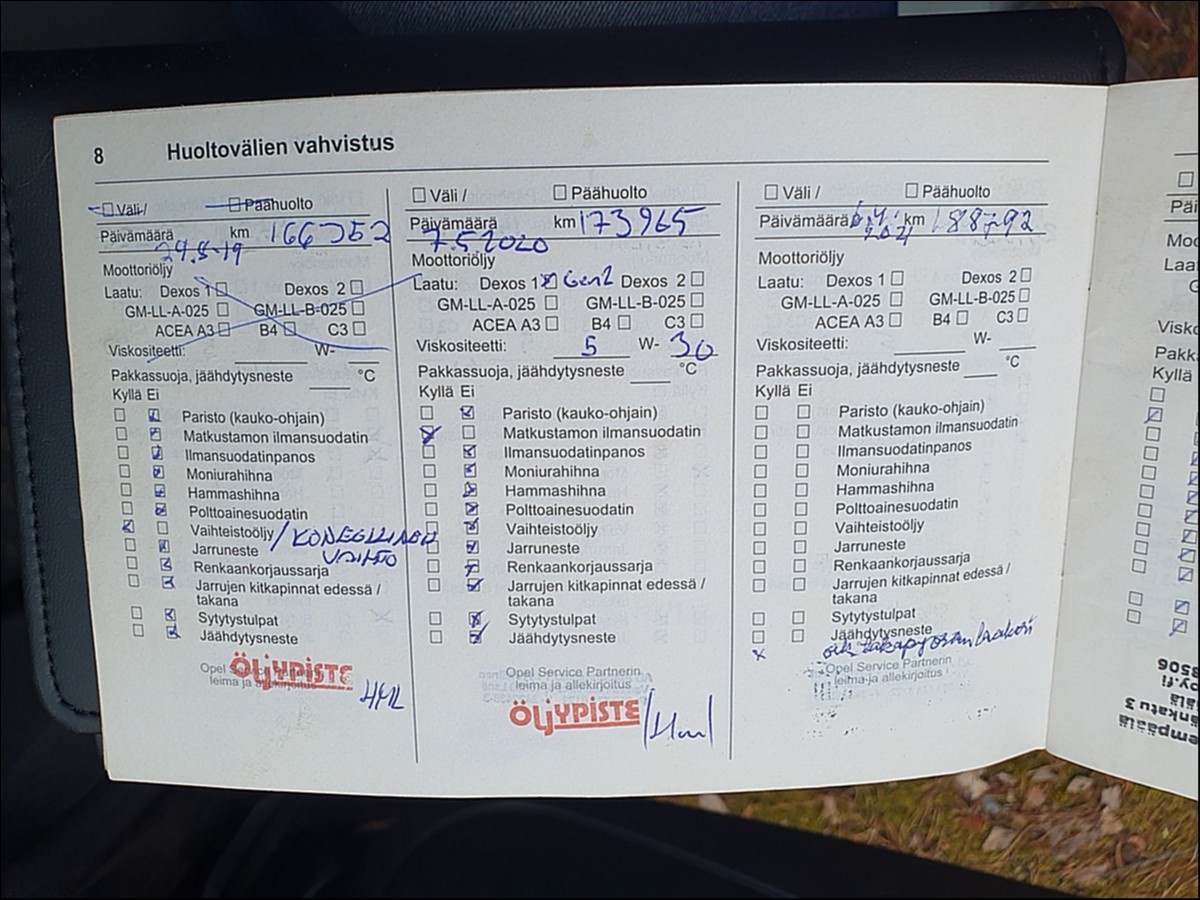 8 Huoltovälien vahvistus
Väli / Päähuolto
Päivämäärä km 166352
29.8-19
Moottoriöljy
Laatu: Dexos 1 Dexos 2
GM-LL-A-025 GM-LL-B-025
ACEA A3 B4 C3
Viskositeetti: W-
Pakkassuoja, jäähdytysneste °C
Kyllä Ei
Paristo (kauko-ohjain)
Matkustamon ilmansuodatin
Ilmansuodatinpanos
Moniurahihna
Hammashihna
Polttoainesuodatin
Vaihteistoöljy / KONEELLINEN
Jarruneste VAIHTO
Renkaankorjaussarja
Jarrujen kitkapinnat edessä /
takana
Sytytystulpat
Jäähdytysneste
Opel Service Partnerin
leima ja allekirjoitus
ÖLJYPISTE
Väli / Päähuolto
Päivämäärä km 173965
7.5.2020
Moottoriöljy
Laatu: Dexos 1 Gen2 Dexos 2
GM-LL-A-025 GM-LL-B-025
ACEA A3 B4 C3
Viskositeetti: 5 W- 30
Pakkassuoja, jäähdytysneste °C
Kyllä Ei
Paristo (kauko-ohjain)
Matkustamon ilmansuodatin
Ilmansuodatinpanos
Moniurahihna
Hammashihna
Polttoainesuodatin
Vaihteistoöljy
Jarruneste
Renkaankorjaussarja
Jarrujen kitkapinnat edessä /
takana
Sytytystulpat
Jäähdytysneste
Opel Service Partnerin
leima ja allekirjoitus
ÖLJYPISTE
Väli / Päähuolto
Päivämäärä km 188792
Moottoriöljy
Laatu: Dexos 1 Dexos 2
GM-LL-A-025 GM-LL-B-025
ACEA A3 B4 C3
Viskositeetti: W-
Pakkassuoja, jäähdytysneste °C
Kyllä Ei
Paristo (kauko-ohjain)
Matkustamon ilmansuodatin
Ilmansuodatinpanos
Moniurahihna
Hammashihna
Polttoainesuodatin
Vaihteistoöljy
Jarruneste
Renkaankorjaussarja
Jarrujen kitkapinnat edessä /
takana
Sytytystulpat
Jäähdytysneste
x oik takapyörän laakeri
Opel Service Partnerin
leima ja allekirjoitus
Kyllä